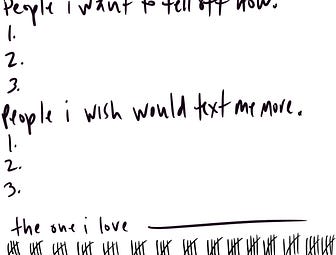 People i want to tell off now.
1.
2.
3.
People i wish would text me more.
1.
2.
3.
the one i love